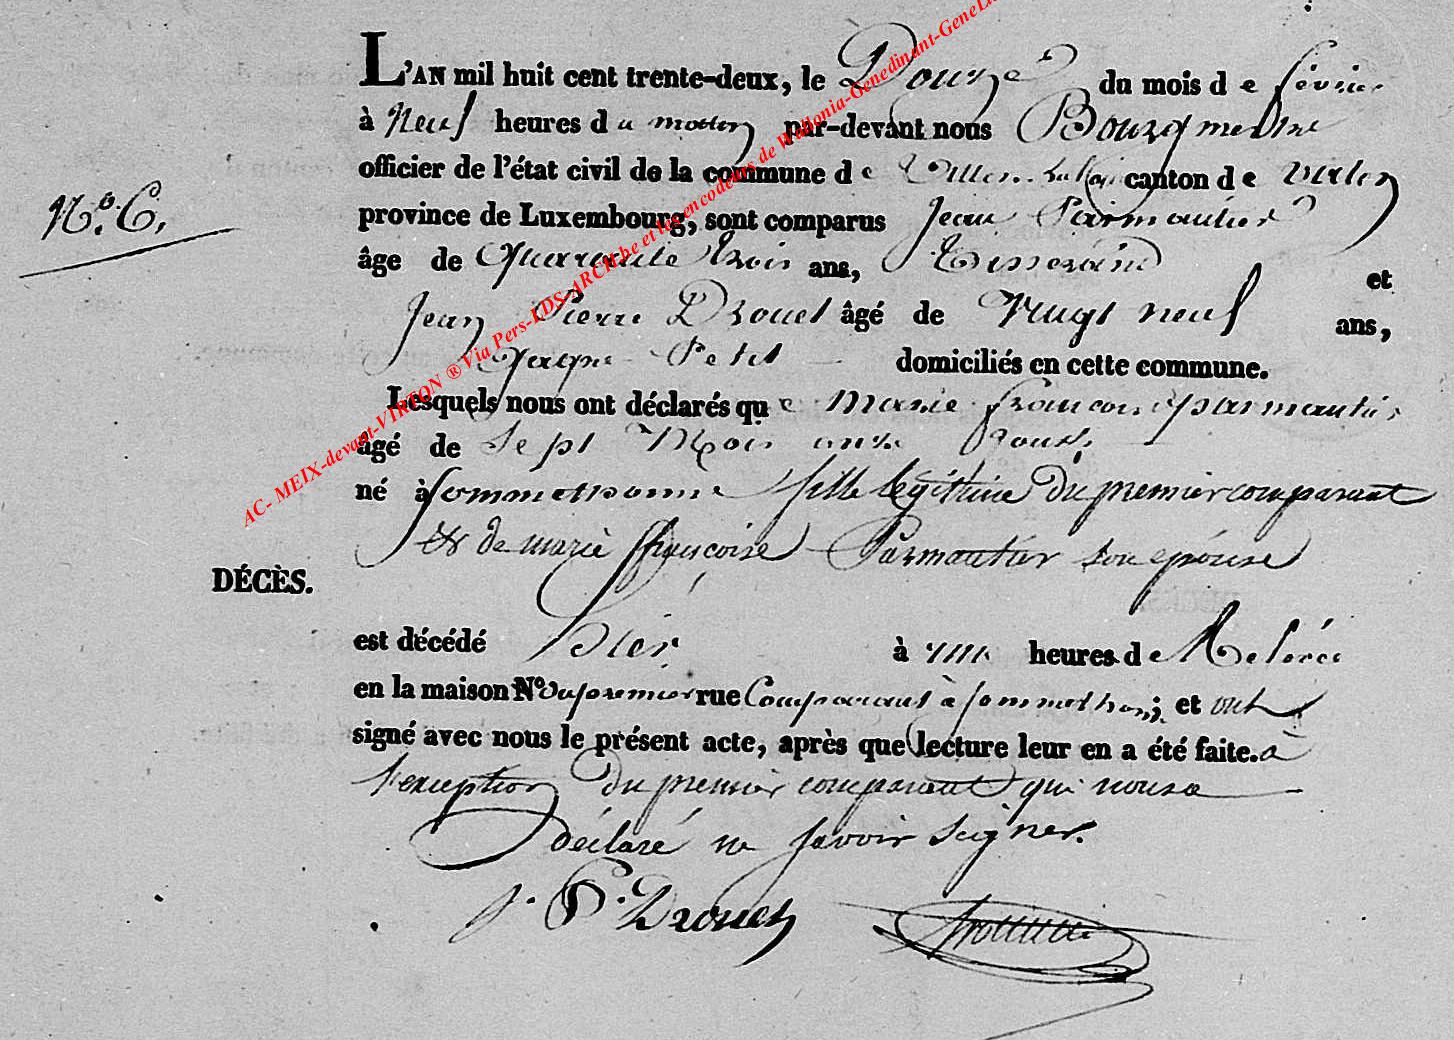 L'AN mil huit cent trente-deux, le Douze du mois de février
à Neuf heures du matin par-devant nous Bourgmestre
officier de l'état civil de la commune de canton de virton
province de Luxembourg, sont comparus Jean Parmentier
âge de Quarante trois ans, Tisserand et
Jean Pierre Drouet âgé de Vingt neuf ans,
domiciliés en cette commune.
Lesquels nous ont déclarés que Marie françoise parmantier
âgé de Sept Mois onze jours
né à sommethonne fille légitime Du premier comparant
& de marie françoise Parmantier son épouse
Nº 6.
DÉCÈS.
est décédé hier à heures de Relevée
en la maison Nº du premier rue Comparant à sommethonne; et ont
signé avec nous le présent acte, après que lecture leur en a été faite. à
l'exception Du premier comparant qui nous a
déclaré ne savoir signer.
J. P. Drouet
AC- MEIX-devant-VIRTON ® Via Pers-LDS-ARCH.be et les encodeurs de Wallonia-Genedinant-GeneLu